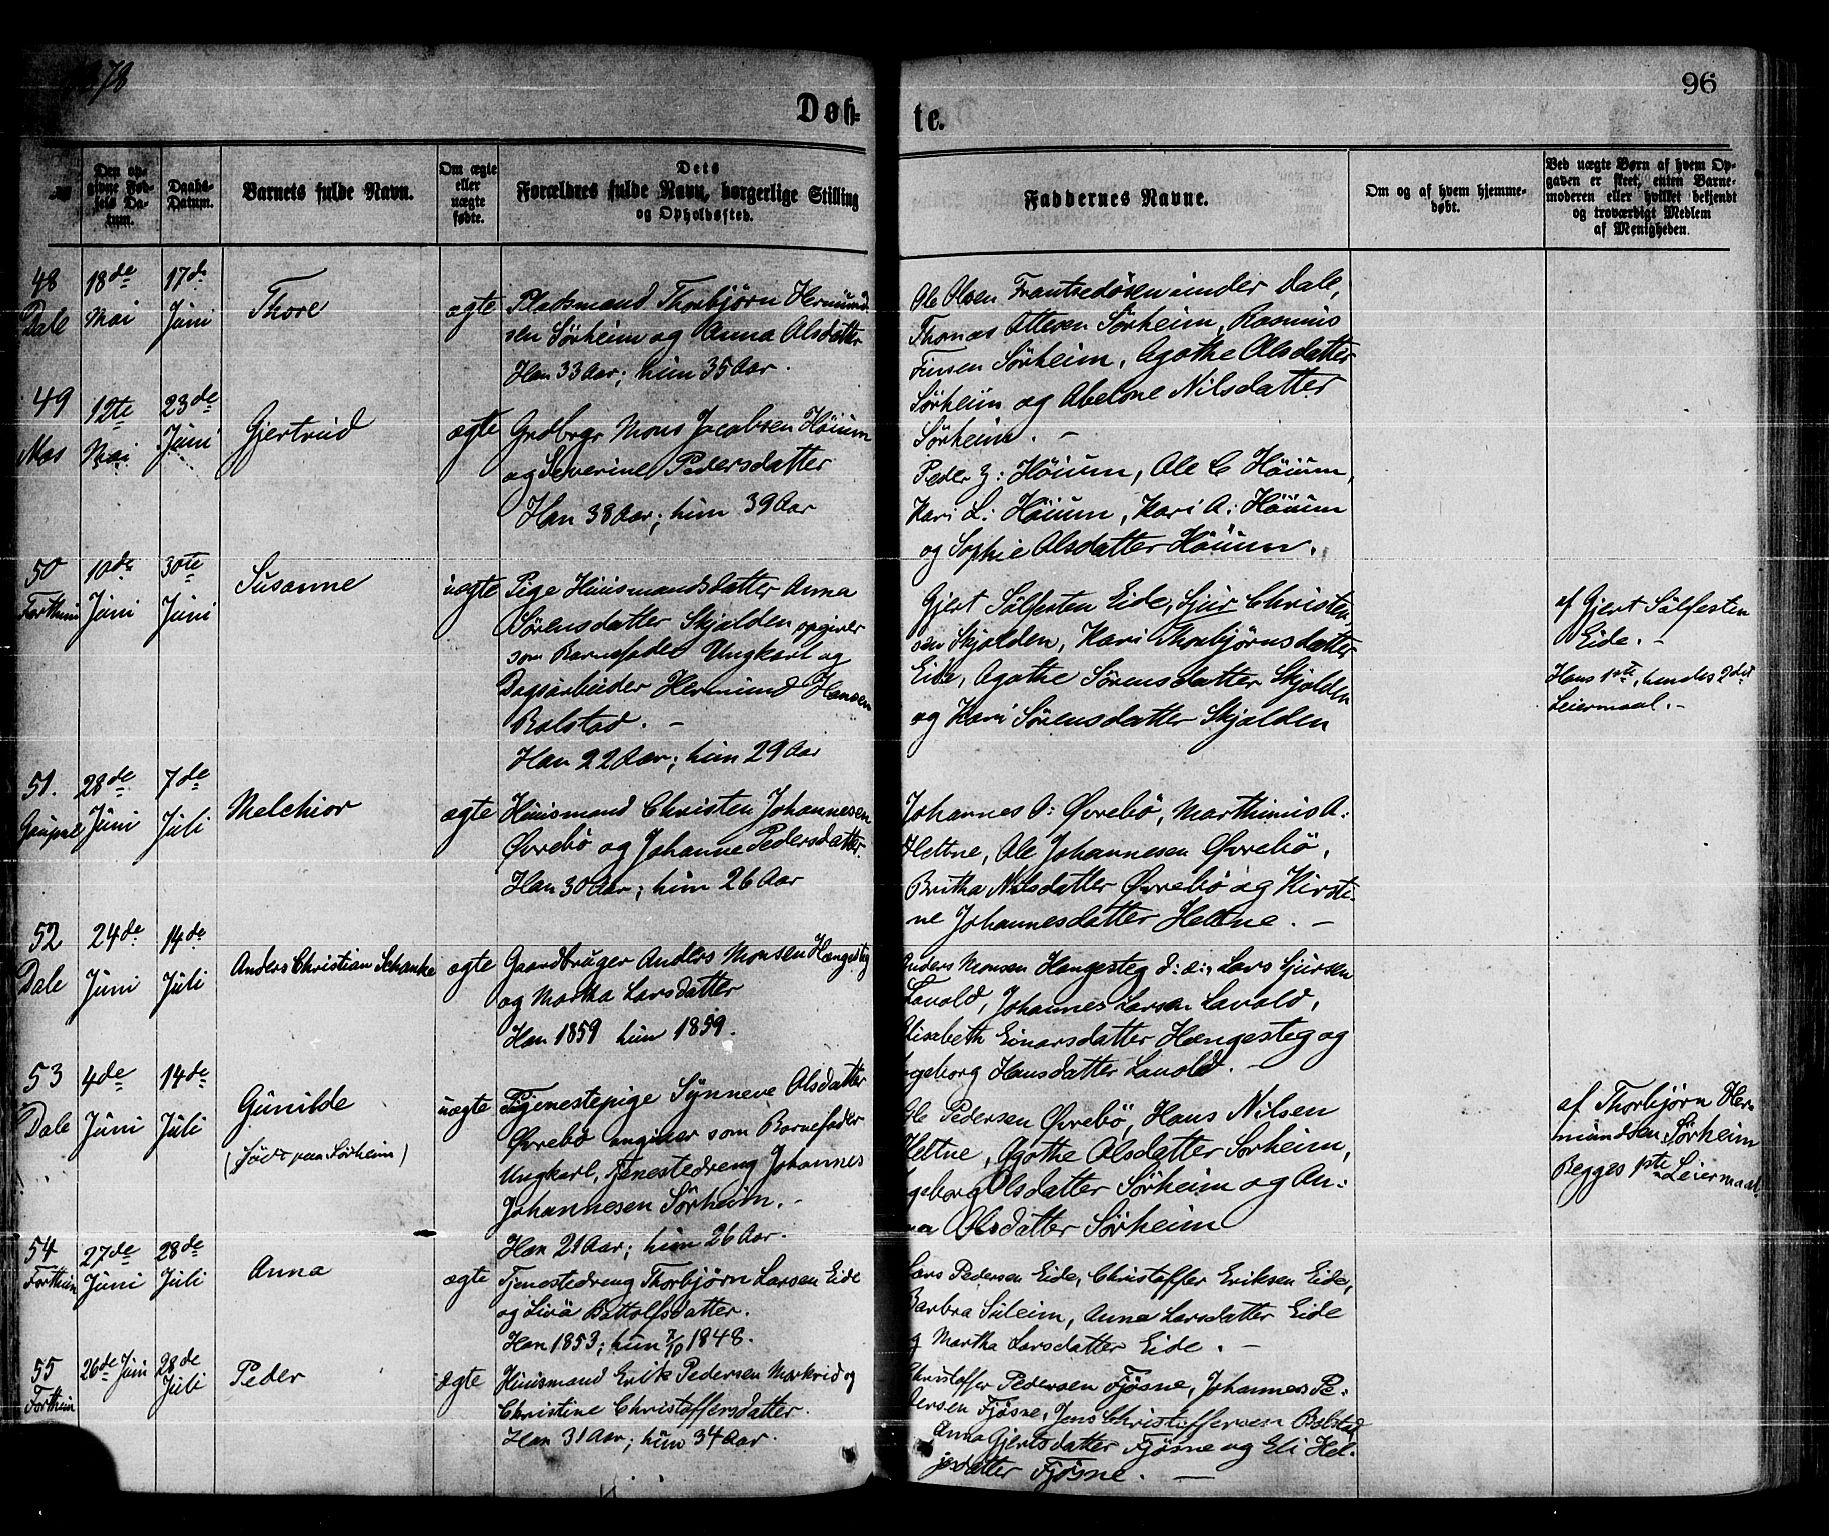 1878
96
Døb-
te.
Den op-
givne Fød-
sels Da-
tum.
Daabs-
Datum.
Barnets fulde Navn.
Om ægte
eller
uægte
fødte.
Dets
Forældres fulde Navn, borgerlige Stilling
og Opholdssted.
Faddernes Navne.
Om og af hvem hjemme-
døbt.
Ved uægte Børn af hvem Op-
gaven er skeet, enten Barne-
moderen eller hvilket bekjendt
og troværdigt Medlem
af Menigheden.
48
Dale
18de
Mai
17de
Juni
Thore
ægte
Pladsmand Thorbjørn Hermund-
sen Sørheim og Anna Olsdatter
Han 33 Aar; hun 35 Aar.
Ole Olsen Frantzedøsen under Dale,
Thomas Ottesen Sørheim, Rasmus
Finsen Sørheim, Agathe Olsdatter
Sørheim og Abelone Nilsdatter
Sørheim. -
49
Næs
12te
Mai
23de
Juni
Gjertrud
ægte
Grdbrgr Mons Jacobsen Høium
og Severine Pedersdatter
Han 38 Aar; hun 39 Aar
Peder Z: Høium, Ole C Høium,
Kari L: Høium, Kari A: Høium
og Sophie Olsdatter Høium.
50
Forthun
10de
Juni
30te
Juni
Susanne
uægte
Pige Huusmandsdatter Anna
Sørensdatter Skjolden opgiver
som Barnefader Ungkarl og
Dagsarbeider Hermund Hansen
Bolstad. -
Han 22 Aar; hun 29 Aar
Gjert Sølfesten Eide, Sjur Christen-
sen Skjolden, Kari Thorbjørnsdatter
Eide, Agathe Sørensdatter Skjolden
og Kari Sørensdatter Skjolden
af Gjert Sølfesten
Eide. -
Hans 1ste, hendes 2det
Leiermaal. -
51.
Gaupne
28de
Juni
7de
Juli
Melchior
ægte
Huusmand Christen Johannesen
Øvrebø og Johanne Pedersdatter.
Han 30 Aar; hun 26 Aar
Johannes O: Øvrebø, Marthinus A:
Hettne, Ole Johannesen Øvrebø,
Britha Nilsdatter Øvrebø og Kirsti-
ne Johannesdatter Hettne. -
52
Dale
24de
Juni
14de
Juli
Anders Christian Schanke
ægte
Gaardbruger Anders Monsen Hængesteg
og Martha Larsdatter
Han 1859 hun 1859.
Anders Monsen Hangesteg d: æ:, Lars Sjursen
Lavold, Johannes Larsen Lavold,
Elisabeth Einarsdatter Hængesteg og
Ingeborg Hansdatter Lavold. -
53
Dale
4de
Juni
14de
Juli
Gunilde
(Født paa Sørheim)
uægte
Tjenestepige Synneve Olsdatter
Øvrebø angiver som Barnefader
Ungkarl, Tjenestedreng Johannes
Johannesen Sørheim. -
Han 21 Aar; hun 26 Aar.
Ole Pedersen Øvrebø, Hans Nilsen
Hettne, Agathe Olsdatter Sørheim,
Ingeborg Olsdatter Sørheim og An-
na Olsdatter Sørheim
af Thorbjørn Her-
mundsen Sørheim
Begges 1ste Leiermaal.
54
Forthun
27de
Juni
28de
Juli
Anna
ægte
Tjenestedreng Thorbjørn Larsen Eide
og Bottolfsdatter.
Han 1853; hun 1848.
Lars Pedersen Eide, Christoffer Eriksen Eide,
Barbra Suleim, Anna Larsdatter Eide
og Martha Larsdatter Eide. -
55
Forthun
26de Juni
28de
Juli
Peder
ægte
Huusmand Erik Pedersen Morkrid og
Christine Christoffersdatter.
Han 31 Aar; hun 34 Aar.
Christoffer Pedersen Fjøsne, Johannes Pe-
dersen Fjøsne, Jens Christoffersen Bolstad
Anna Gjertsdatter Fjøsne og Eli Hel-
jesdatter Fjøsne. -